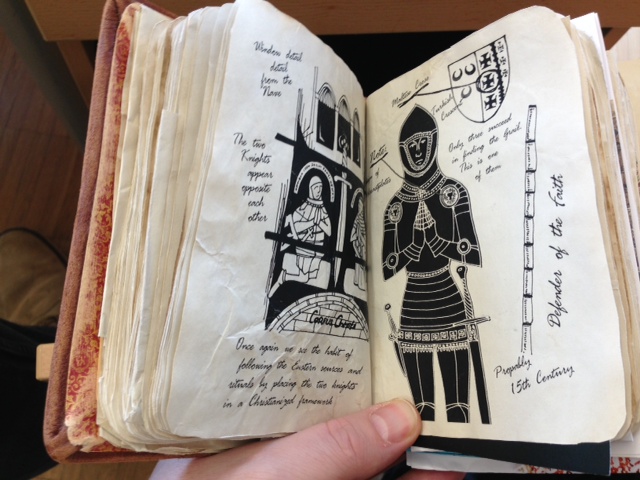 Window detail
detail
from the
Nave
The two
Knights
appear
opposite
each
other
Once again we see the habit of
following the Eastern sources and
rituals by placing the two knights
in a Christianized framework
Maltese Cross
Turkish
Crescent
Only three succeed
in finding the Grail.
This is one
of them
Notes
of
Defender of the Faith
Propably
15th Century